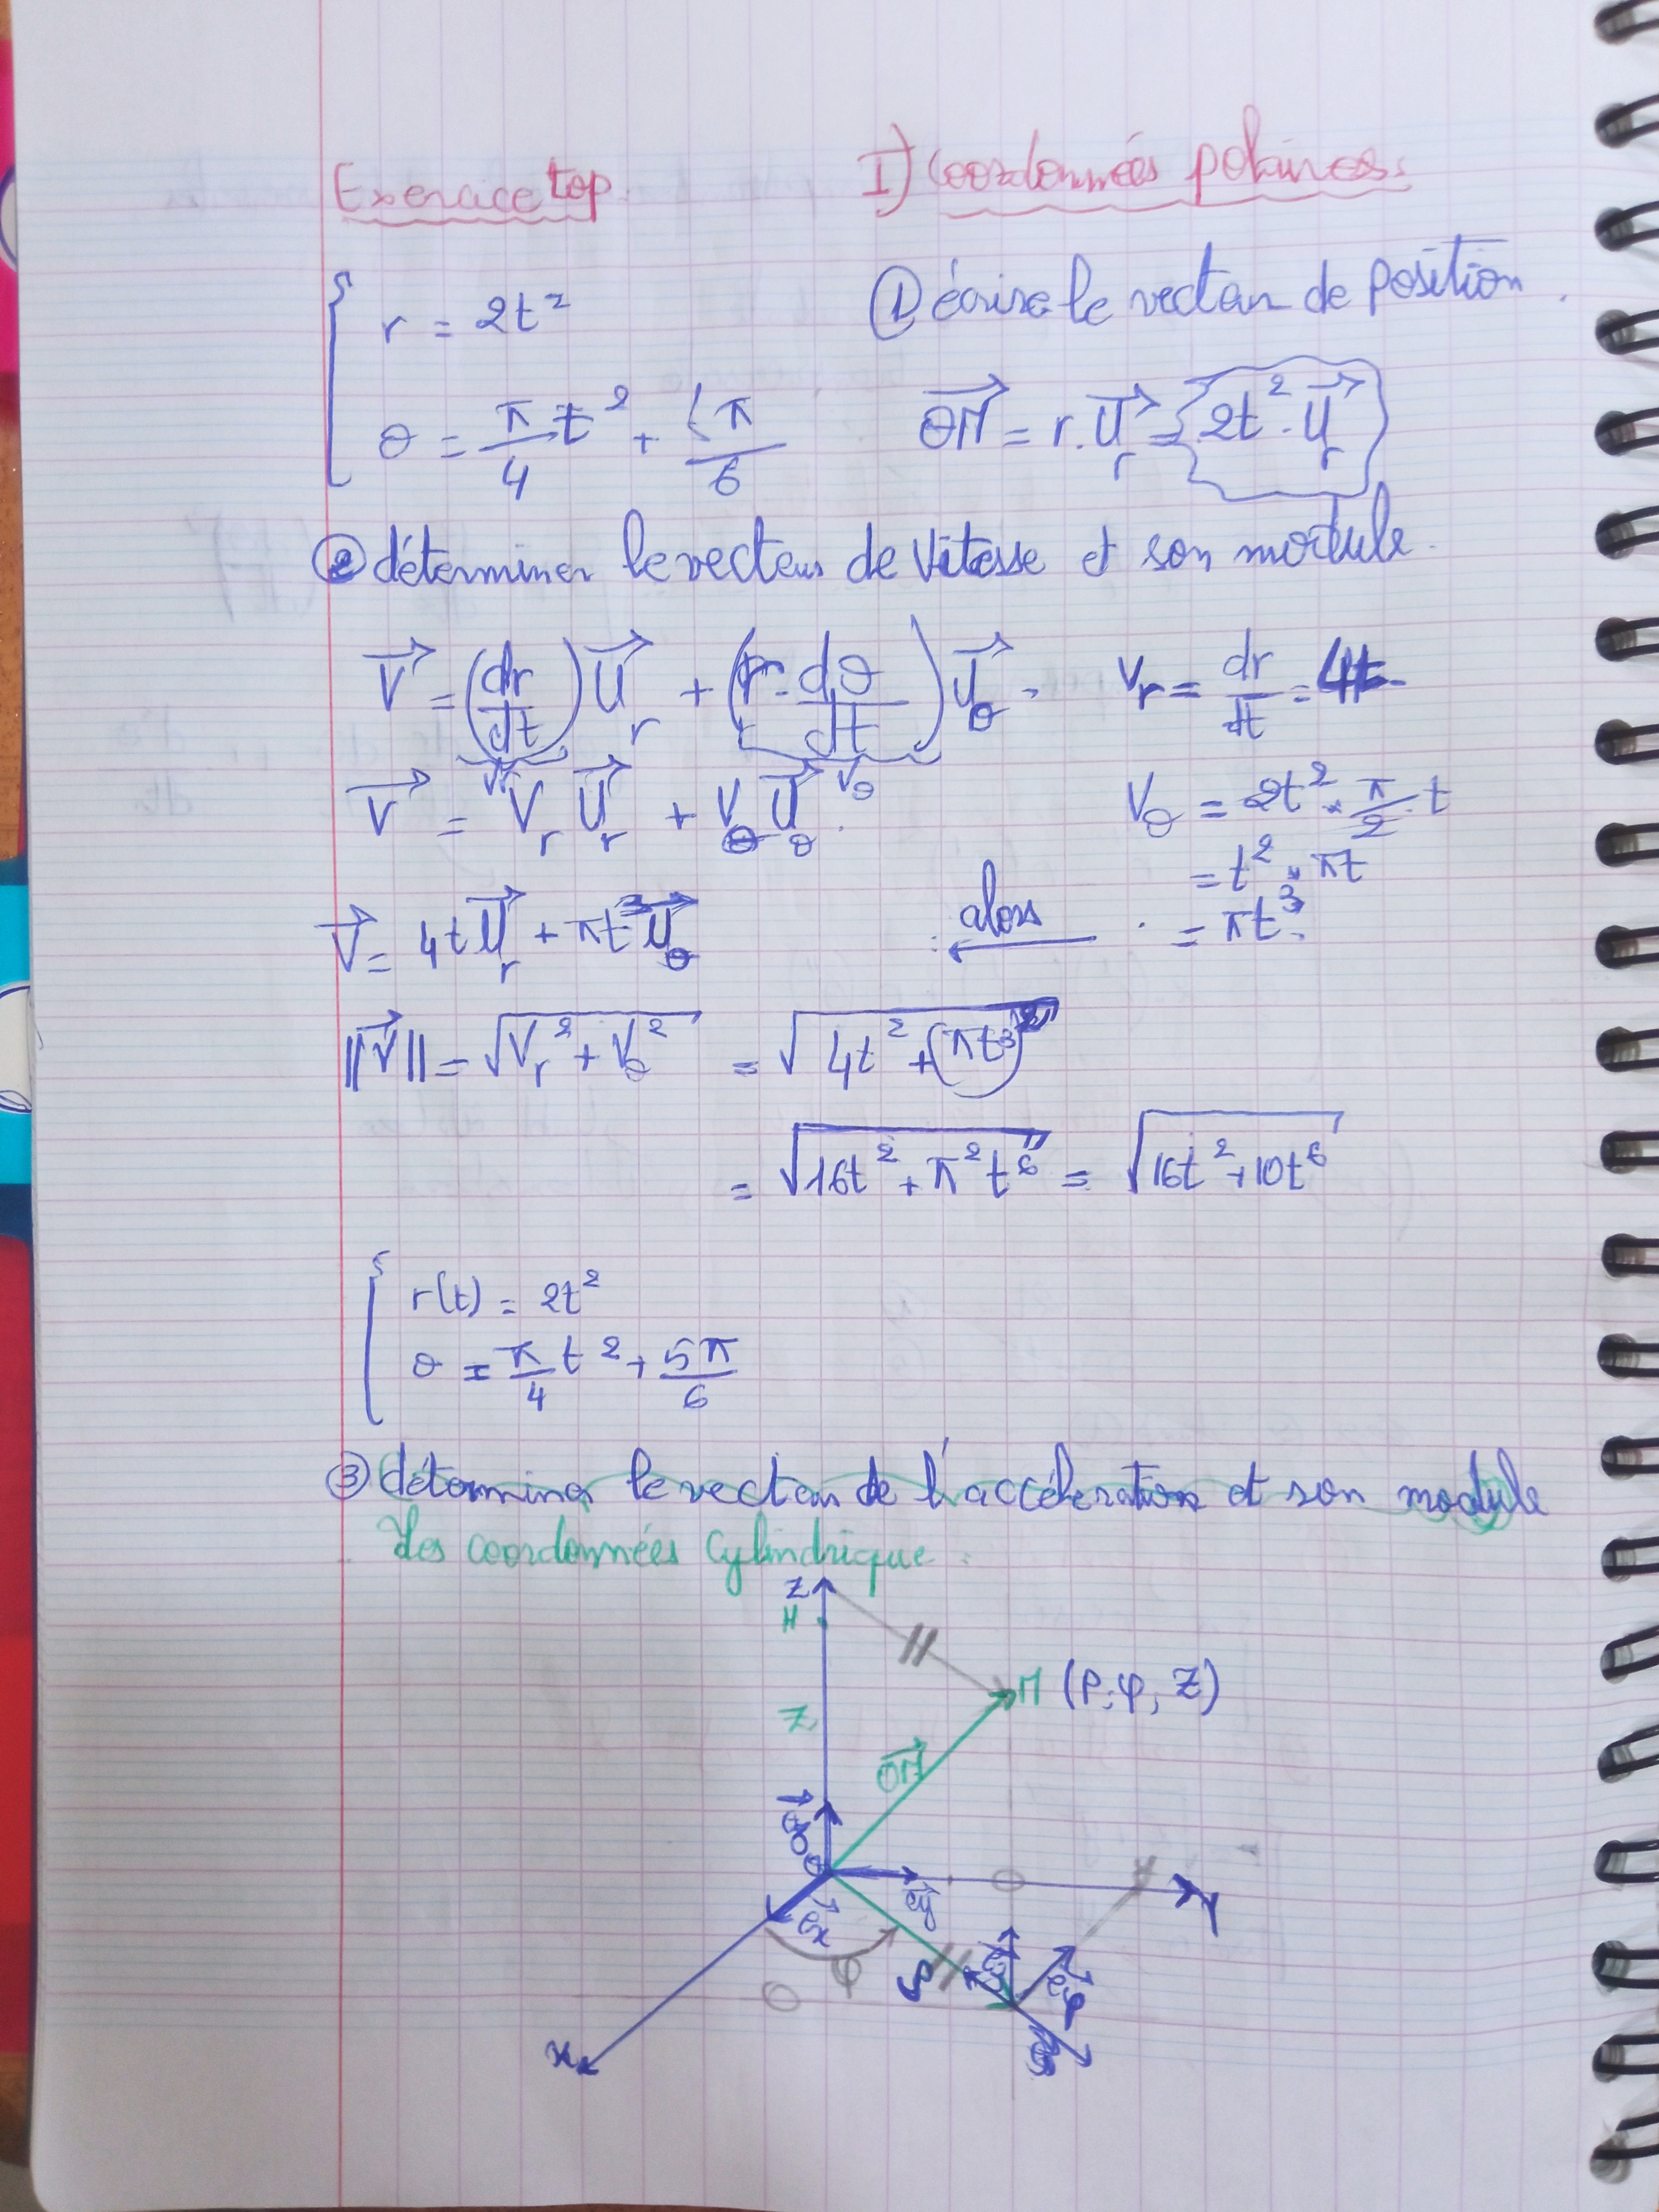 Exercice top.
I) Coordonnées polaires:
r = 2t²
① écrire le vecteur de position.
θ = π/4 t² + 5π/6
OM⃗ = r.U⃗r = 2t².U⃗r
② déterminer le vecteur de vitesse et son module.
V⃗ = (dr/dt) U⃗r + (r.dθ/dt) U⃗θ.
Vr Vθ
Vr = dr/dt = 4t
V⃗ = Vr U⃗r + Vθ U⃗θ.
Vθ = 2t² × π/2 t
= t² × πt
V⃗ = 4t U⃗r + πt³ U⃗θ
alors
= πt³.
||V⃗|| = √(Vr² + Vθ²) = √(4t² + (πt³)²)
= √(16t² + π²t⁶) = √(16t² + 10t⁶)
r(t) = 2t²
θ = π/4 t² + 5π/6
③ déterminer le vecteur de l'accélération et son module
Les coordonnées Cylindrique:
Z
H
M (ρ, φ, Z)
Z
OM⃗
O
e⃗y
Y
e⃗x
φ
ρ
e⃗φ
x